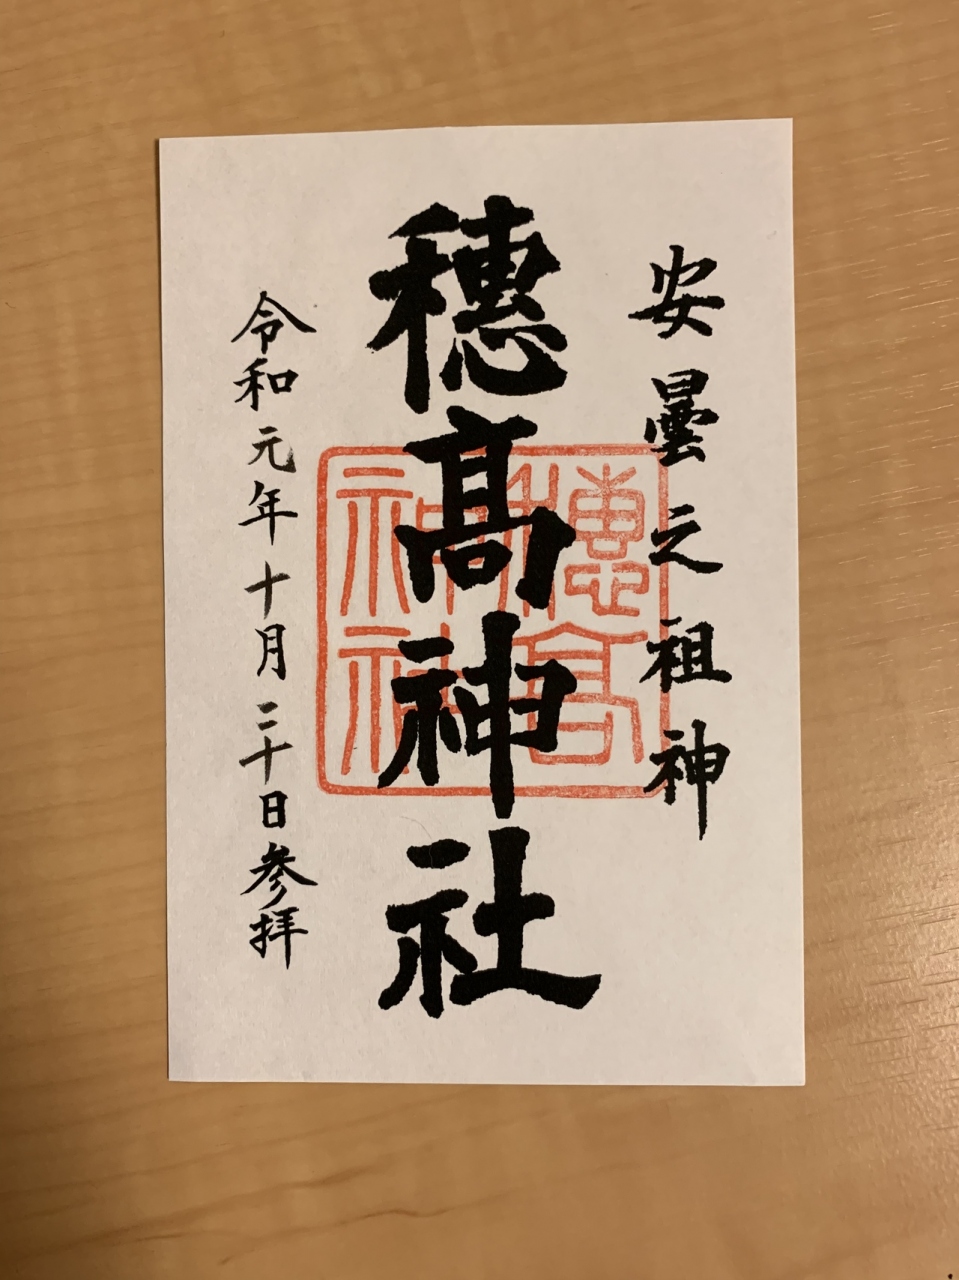 安曇之祖神
穗髙神社
穗高
神社
令和元年十月二十日参拝